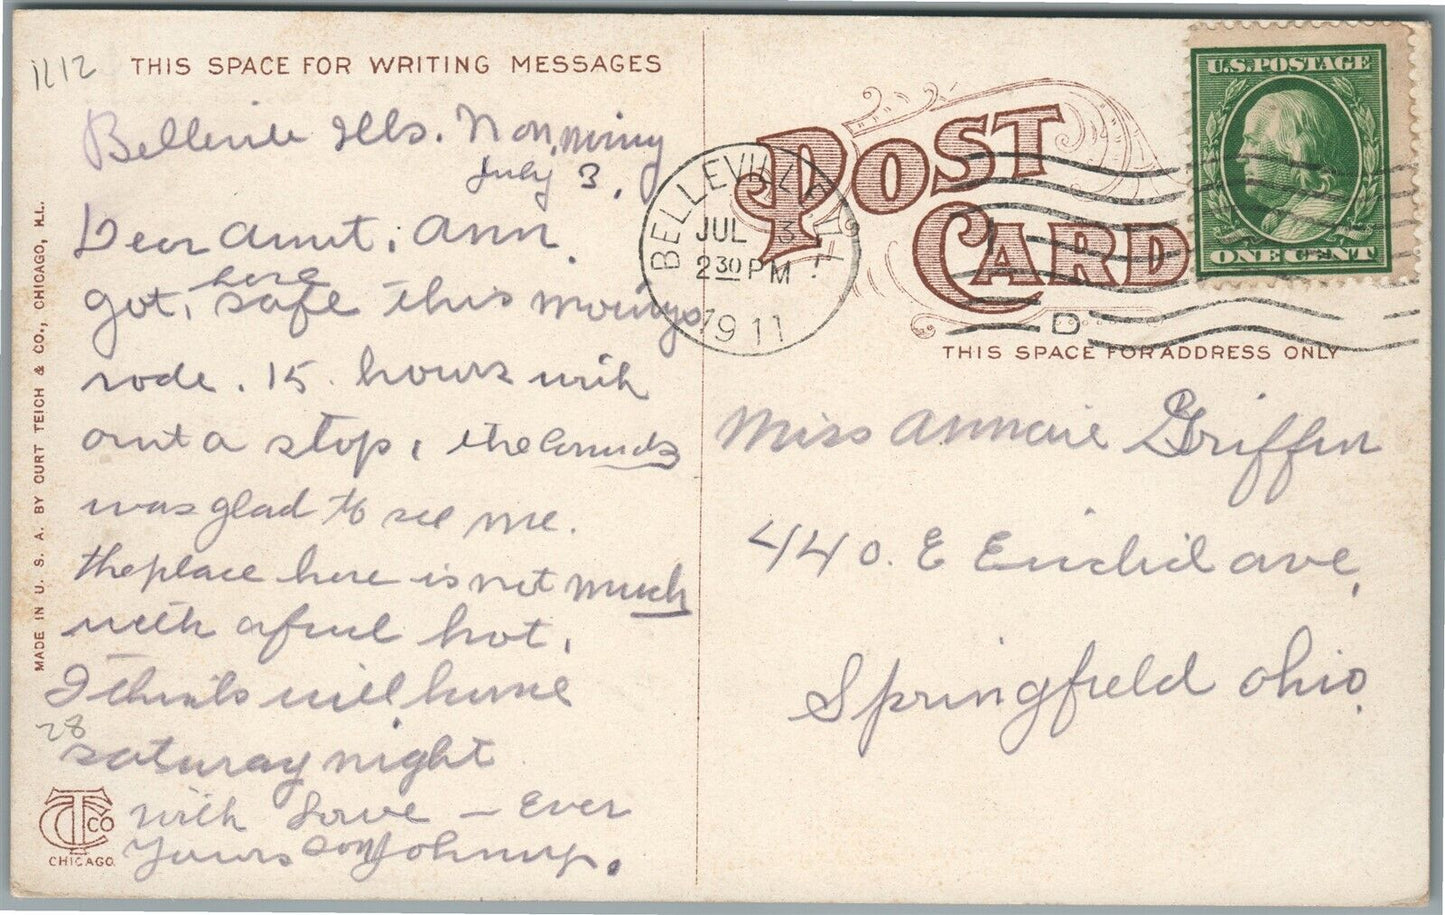 1112
THIS SPACE FOR WRITING MESSAGES
Belleville Ills. Mon, morning
July 3,
Dear Aunt. Ann.
got, here safe this morings
rode. 15. hours with
out a stop,
was glad to see me.
the place here is not much
with afwul hot,
I think will home
28
saturay night
with Love — Ever
Yours son Johnny.
MADE IN U. S. A. BY CURT TEICH & CO., CHICAGO, ILL.
CT CO
CHICAGO.
POST CARD
BELLEVILLE, ILL.
JUL 3
2 30 PM
1911
D
U.S. POSTAGE
ONE CENT
THIS SPACE FOR ADDRESS ONLY
Miss Annaie Griffin
440. E Euclid ave,
Springfield Ohio.